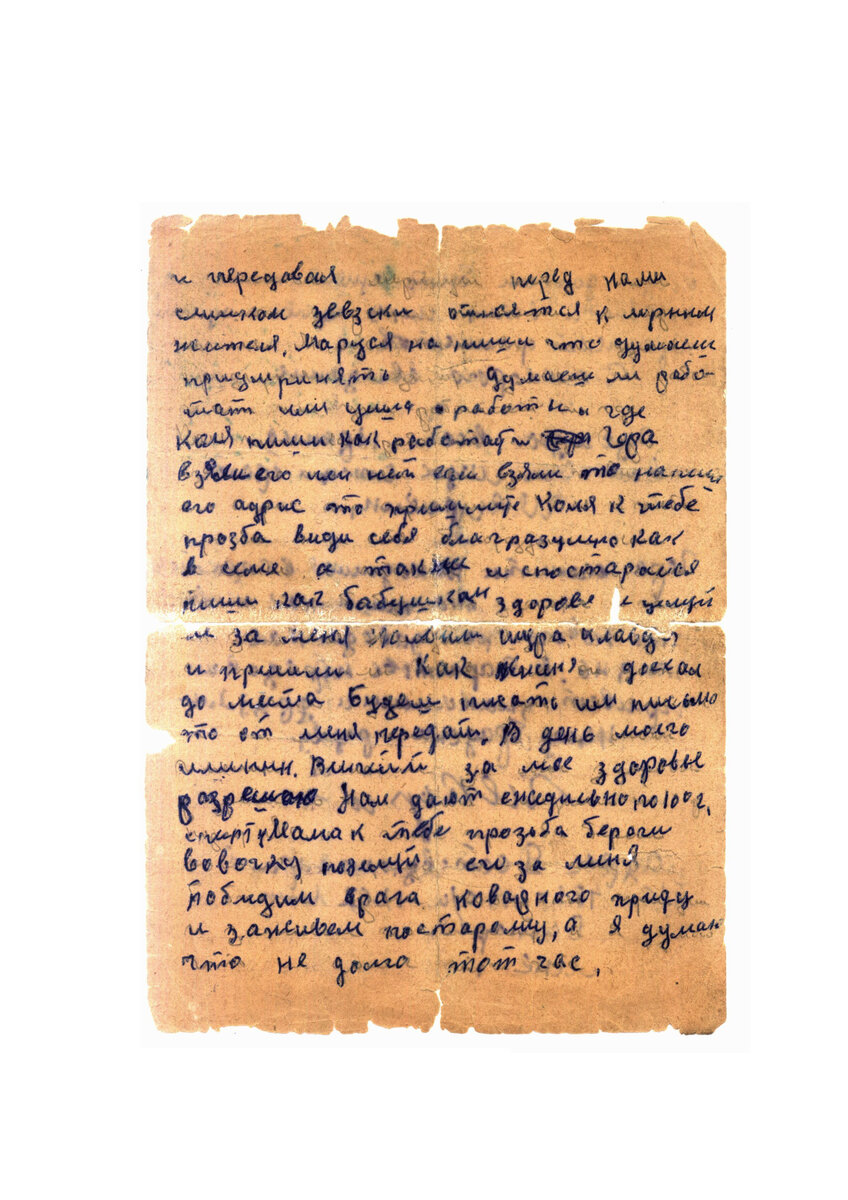 и передовая перед нами
слишком зевзски относятся к мирным
жителя. Маруся напиши что думаеш
придпринять думаеш ли рабо-
тат или уже работ и где
Коля пиши как работат и Гора
взяли его или нет если взяли то напиши
его адрис то пришлите Коля к тебе
прозба види себя благразумно как
в семе а также и спостарайся
пиши как бабушкан здоровя и целуй
и за меня шура клавдя
и пришли Как доехал
до места будеш писать им письмо
то от меня передай. В день моего
имянин. Выпити за мое здоровье
разрешаю Нам дают ежеднвно по 100 г.
спирту Мама к тебе прозьба береги
вовочку поцелуй его за меня
победим врага коварного приду
и заживем постарому, а я думаю
что не долга тот час.